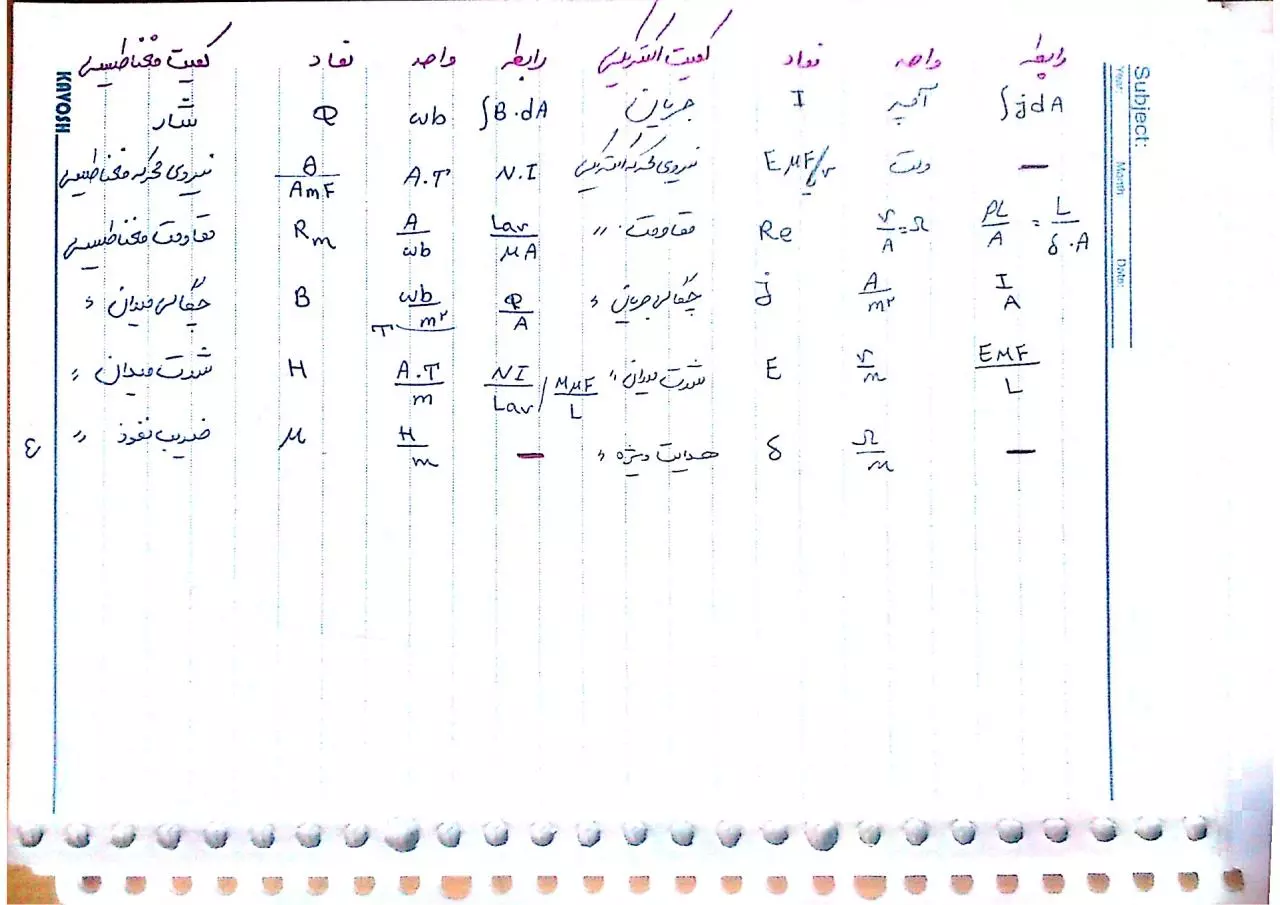 کمیت مغناطیسی نماد واحد رابطه کمیت الکتریکی نماد واحد رابطه
شار φ wb ∫B·dA جریان I آمپر ∫jdA
نیروی محرکه مغناطیسی θ/AmF A.T N.I نیروی محرکه الکتریکی EMF/v ولت —
مقاومت مغناطیسی Rm A/wb Lav/μA مقاومت " Re v/A=Ω ρL/A = L/δ·A
چگالی میدان " B wb/m² T φ/A چگالی جریان " j A/m² I/A
شدت میدان " H A.T/m NI/Lav / MMF/L شدت میدان " E v/m EMF/L
ضریب نفوذ " μ H/m — هدایت ویژه " δ Ω/m —
٤
KAVOSH
Subject:
Year: Month: Date: